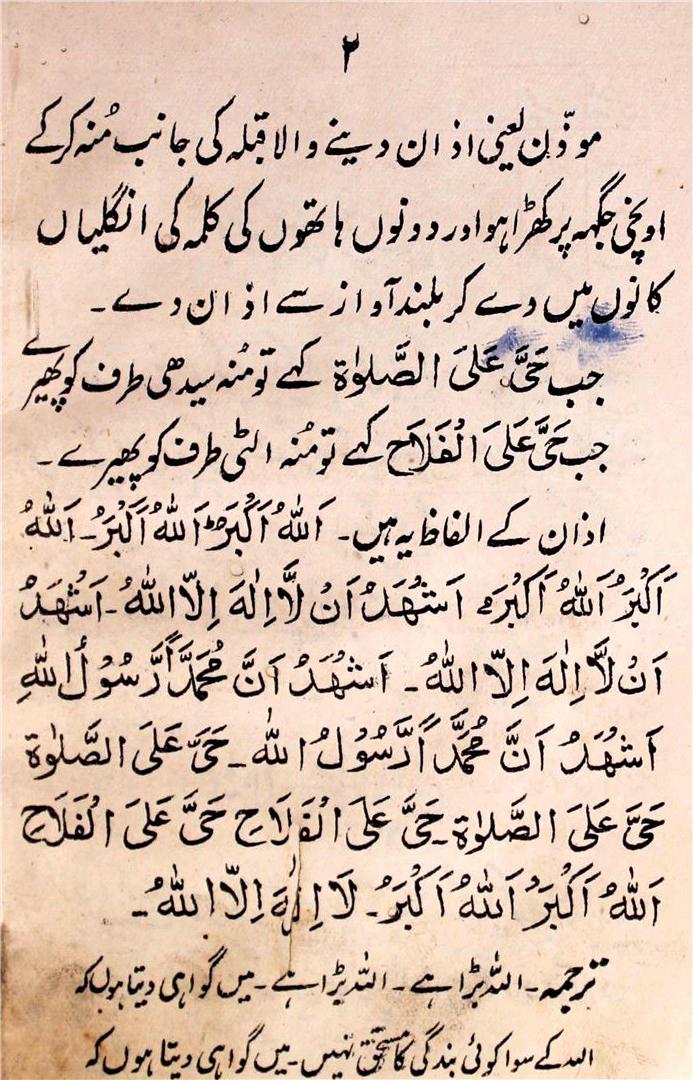 ۲
موذّن یعنی اذان دینے والا قبلہ کی جانب مُنہ کرکے
اونچی جگہہ پر کھڑا ہو اور دونوں ہاتھوں کی کلمہ کی انگلیاں
کانوں میں دے کر بلند آواز سے اذان دے۔
جب حَیَّ عَلَی الصَّلوٰۃ کہے تو مُنہ سیدھی طرف کو پھیرے
جب حَیَّ عَلَی الْفَلَاح کہے تو مُنہ الٹی طرف کو پھیرے۔
اذان کے الفاظ یہ ہیں۔ اَللّٰہُ اَکْبَرُ اَللّٰہُ اَکْبَرُ۔ اَللّٰہُ
اَکْبَرُ اَللّٰہُ اَکْبَرُ اَشْهَدُ اَنْ لَّا اِلٰهَ اِلَّا اللّٰہُ۔ اَشْهَدُ
اَنْ لَّا اِلٰهَ اِلَّا اللّٰہُ۔ اَشْهَدُ اَنَّ مُحَمَّدًا رَّسُوْلُ اللّٰہِ
اَشْهَدُ اَنَّ مُحَمَّدًا رَّسُوْلُ اللّٰہ۔ حَیَّ عَلَی الصَّلوٰۃ
حَیَّ عَلَی الصَّلوٰۃ۔ حَیَّ عَلَی الْفَلَاحِ حَیَّ عَلَی الْفَلَاحِ
اَللّٰہُ اَکْبَرُ اَللّٰہُ اَکْبَرُ۔ لَا اِلٰهَ اِلَّا اللّٰہُ۔
ترجمہ۔ اللہ بڑا ہے۔ اللہ بڑا ہے۔ میں گواہی دیتا ہوں کہ
اللہ کے سوا کوئی بندگی کا مستحق نہیں۔ میں گواہی دیتا ہوں کہ